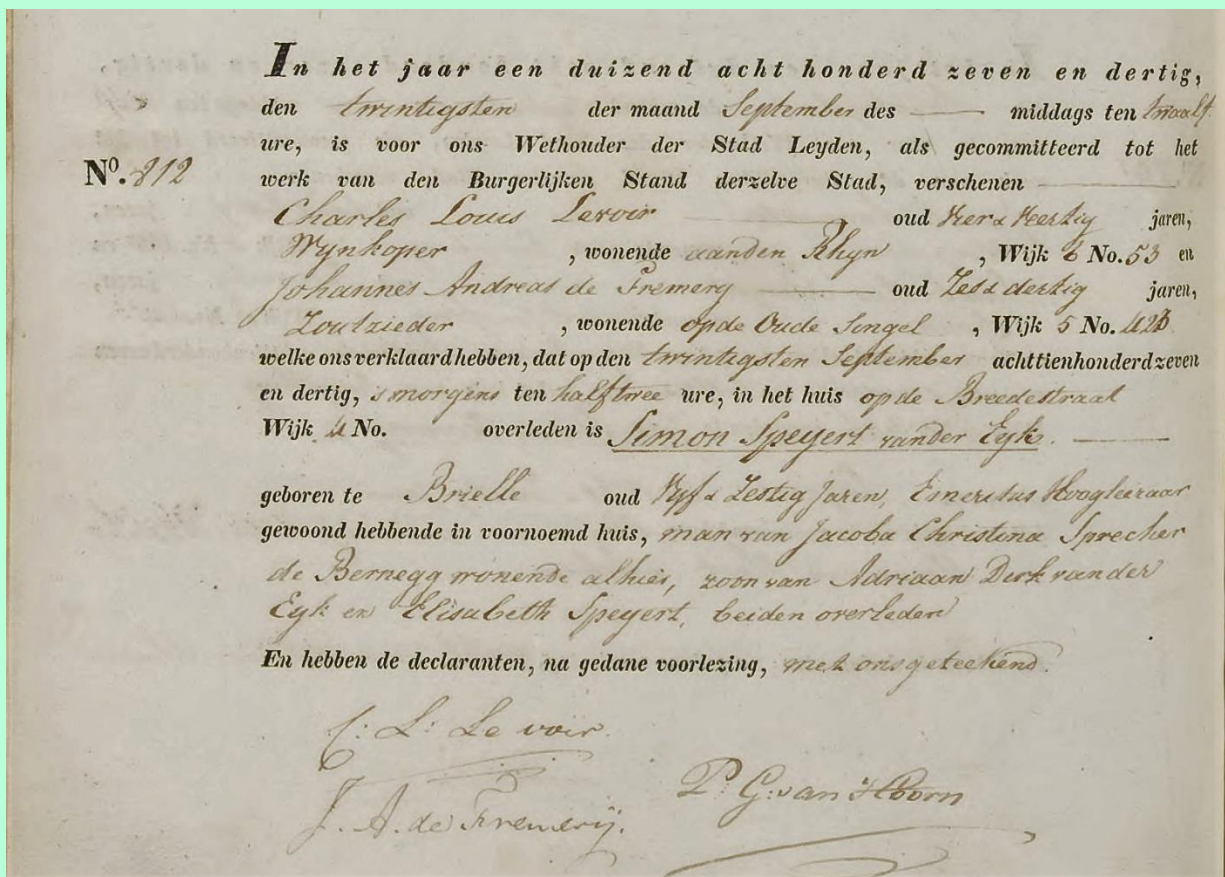 In het jaar een duizend acht honderd zeven en dertig,
den twintigsten der maand September des — middags ten twaalf
ure, is voor ons Wethouder der Stad Leyden, als gecommitteerd tot het
No. 812
werk van den Burgerlijken Stand derzelve Stad, verschenen —
Charles Louis Levoir — oud Vier & Veertig jaren,
Wynkoper , wonende aanden Rhyn , Wijk 6 No. 53 en
Johannes Andreas de Fremery — oud Zes & dertig jaren,
Zoutzieder , wonende op de Oude Singel , Wijk 5 No.
welke ons verklaard hebben, dat op den twintigsten September achttienhonderd zeven
en dertig, smorgens ten half twee ure, in het huis op de Breedestraat
Wijk 4 No. overleden is Simon Speyert vander Eyk. —
geboren te Brielle oud Vyf & Zestig Jaren, Emeritus Hoogleeraar
gewoond hebbende in voornoemd huis, man van Jacoba Christina Sprecher
de Bernegg wonende alhier, zoon van Adriaan Dirk van der
Eyk en Elisabeth Speyert, beiden overleden
En hebben de declaranten, na gedane voorlezing, met ons geteekend.
C: L: Le voir.
P. G: van Hoorn
J. A. de Fremerij.